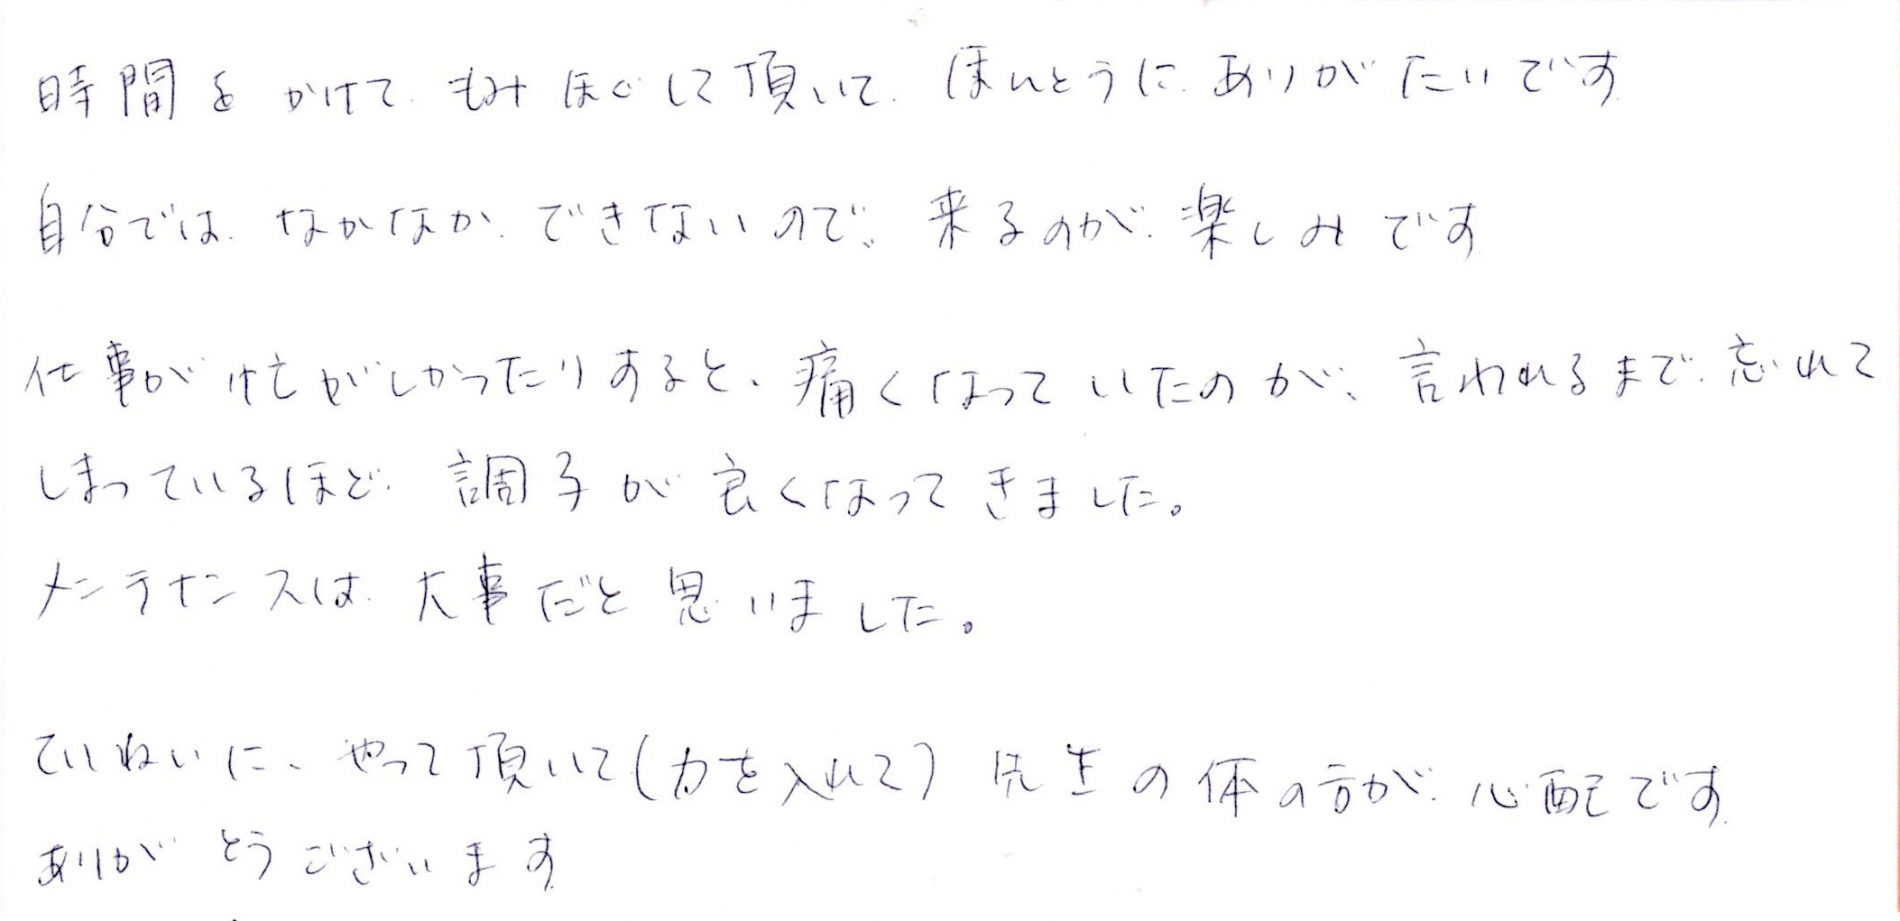 時間をかけて、もみほぐして頂いて、ほんとうにありがたいです
自分では、なかなか、できないので、来るのが、楽しみです
仕事が忙がしかったりすると、痛くなっていたのが、言われるまで、忘れて
しまっているほど、調子が良くなってきました。
メンテナンスは、大事だと思いました。
ていねいに、やって頂いて(力を入れて)先生の体の方が、心配です
ありがとうございます